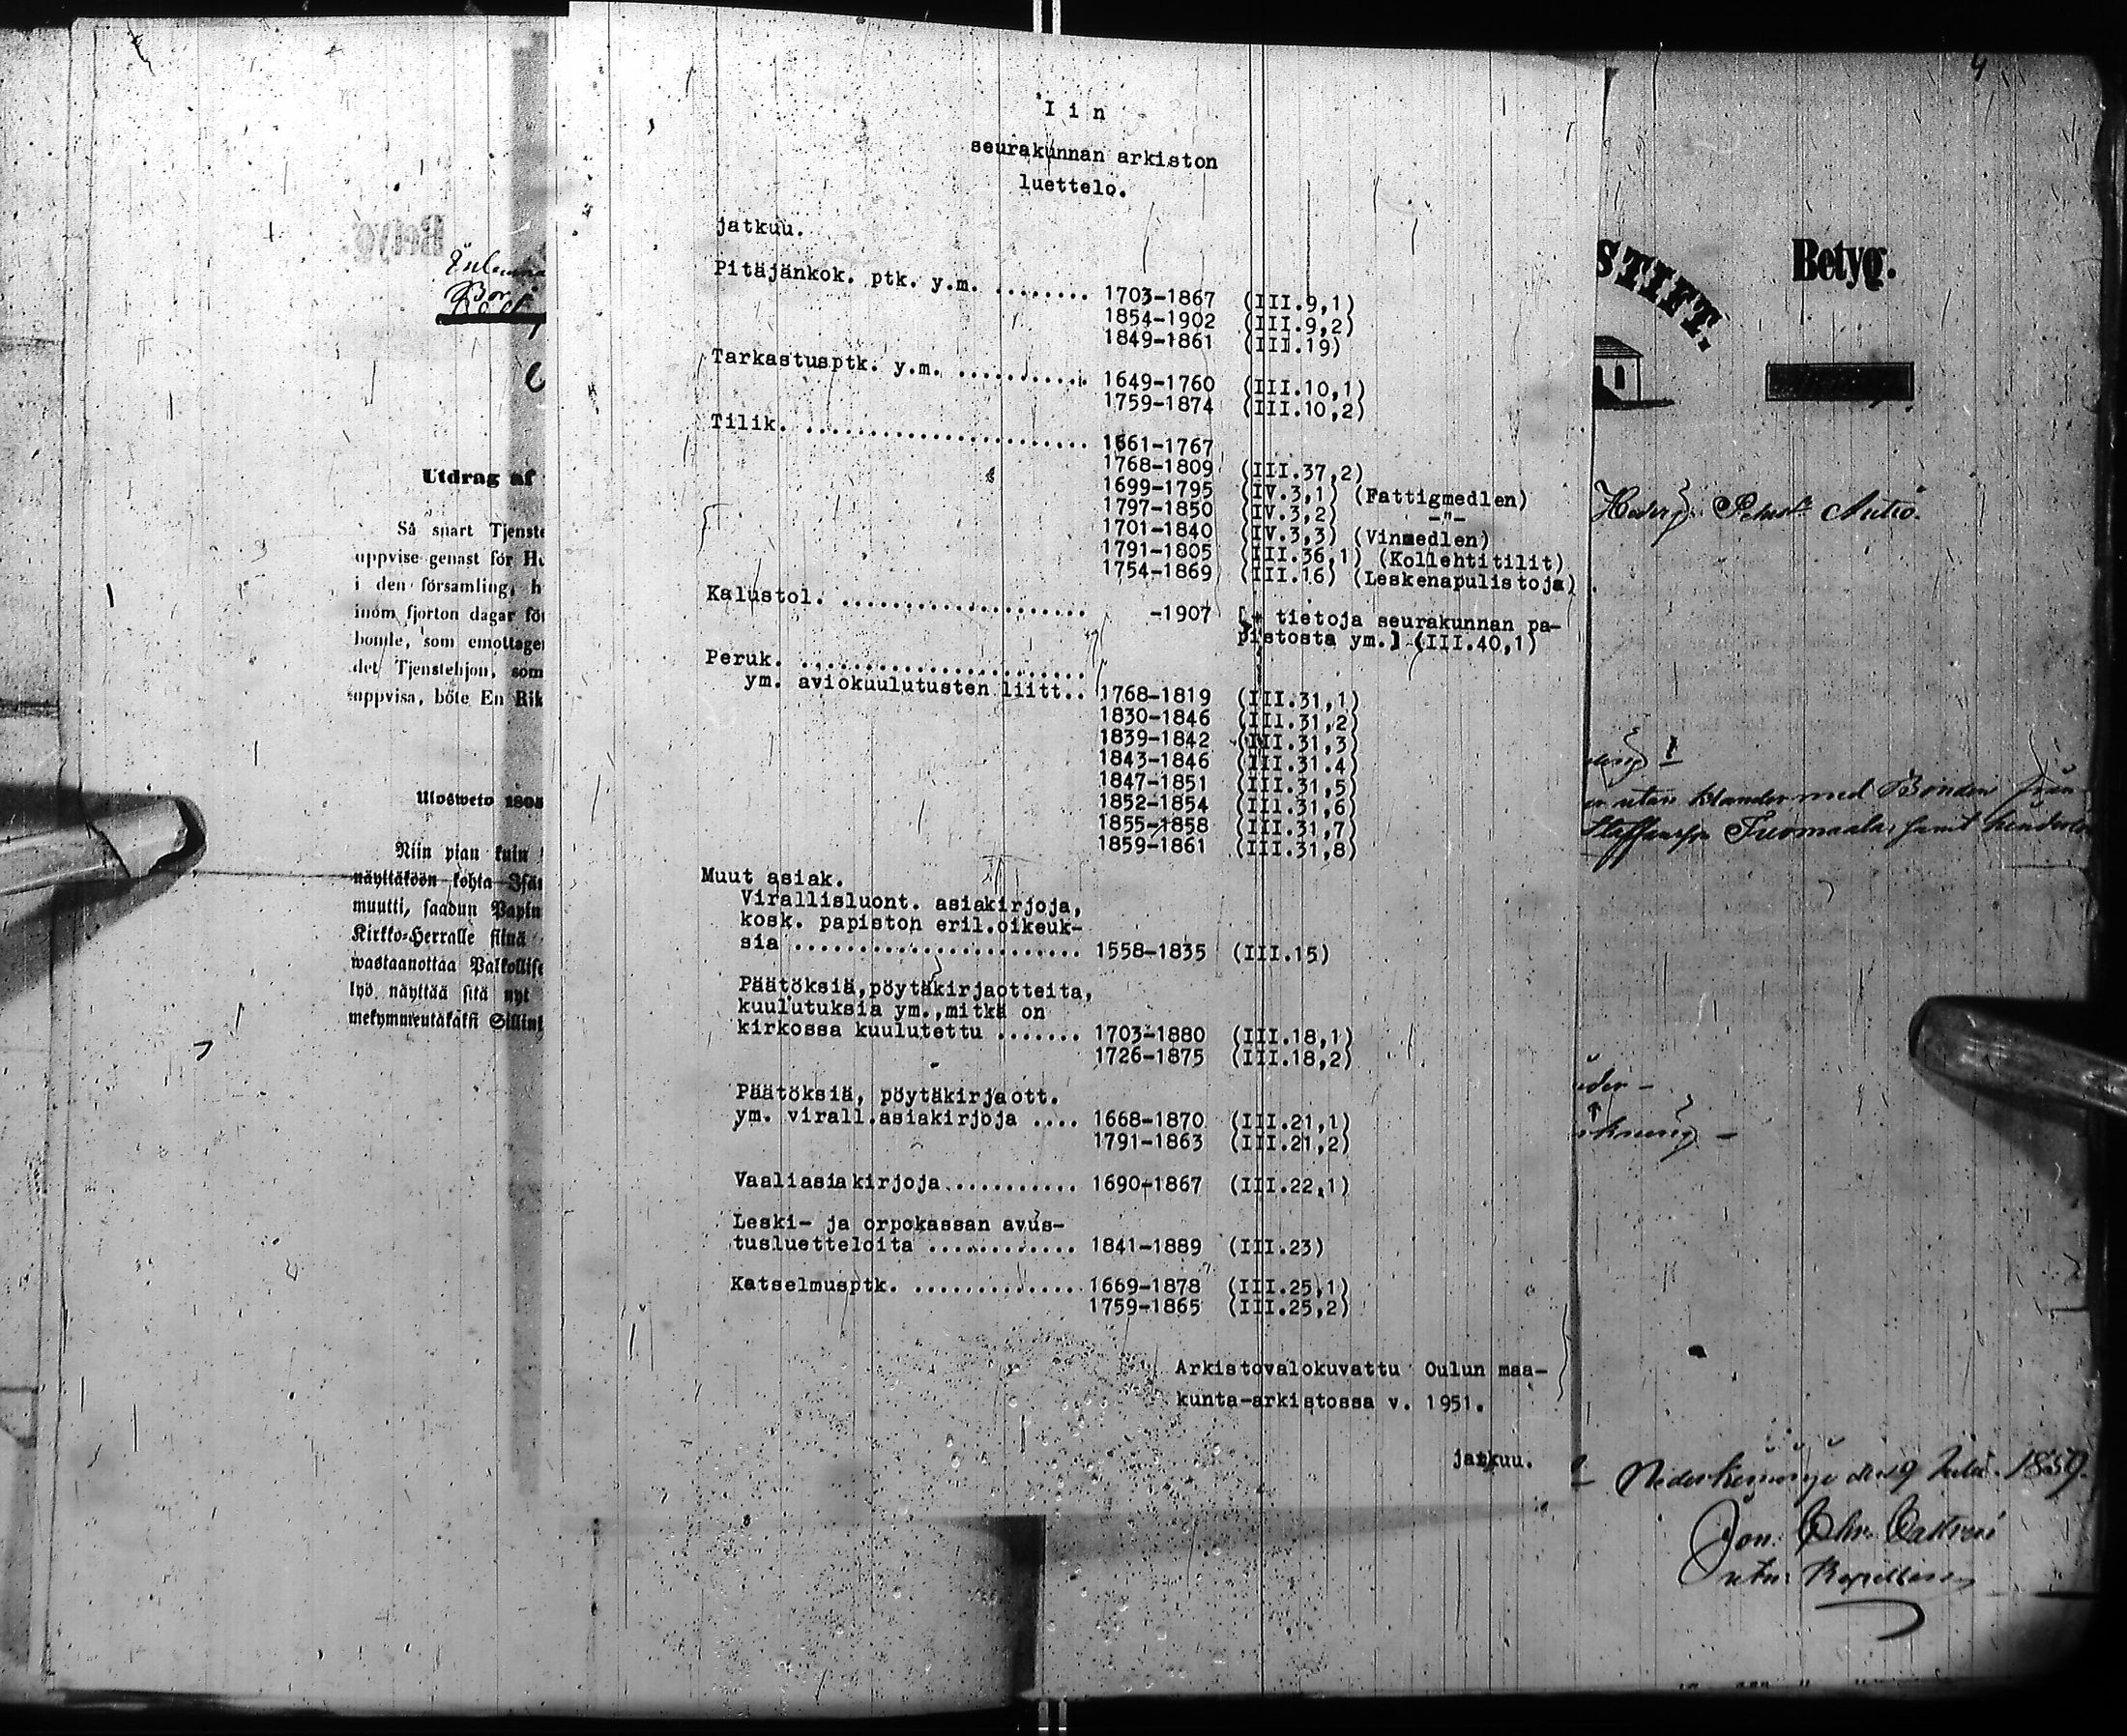 Betyg.
Utdrag af
Så snart Tjenste
uppvise genast för Hu
i den församling, h
inom fjorton dagar för
bonde, som emottager
det Tjenstehjon, som
uppvisa, böte En Rik
Ulosweto 1805
Niin pian kuin
näyttäköön kohta Isän
muutti, saadun Papin
Kirkko-Herralle siinä
wastaanottaa Palkollise
lyö näyttää sitä nyt
mekymmentäkaksi Sillini
I i n
seurakunnan arkiston
luettelo.
jatkuu.
Pitäjänkok. ptk. y.m. ........ 1703-1867 (III.9,1)
1854-1902 (III.9,2)
1849-1861 (III.19)
Tarkastusptk. y.m. ........... 1649-1760 (III.10,1)
1759-1874 (III.10,2)
Tilik. ....................... 1661-1767
1768-1809 (III.37,2)
1699-1795 (IV.3,1) (Fattigmedlen)
1797-1850 (IV.3,2) -"-
1701-1840 (IV.3,3) (Vinmedlen)
1791-1805 (III.36,1) (Kollehtitilit)
1754-1869 (III.16) (Leskenapulistoja)
Kalustol. .................... -1907 [+ tietoja seurakunnan pa-
pistosta ym.] (III.40,1)
Peruk. .......................
ym. aviokuulutusten liitt.. 1768-1819 (III.31,1)
1830-1846 (III.31,2)
1839-1842 (III.31,3)
1843-1846 (III.31.4)
1847-1851 (III.31,5)
1852-1854 (III.31,6)
1855-1858 (III.31,7)
1859-1861 (III.31,8)
Muut asiak.
Virallisluont. asiakirjoja,
kosk. papiston eril.oikeuk-
sia ....................... 1558-1835 (III.15)
Päätöksiä,pöytäkirjaotteita,
kuulutuksia ym.,mitkä on
kirkossa kuulutettu ....... 1703-1880 (III.18,1)
1726-1875 (III.18,2)
Päätöksiä, pöytäkirjaott.
ym. virall.asiakirjoja .... 1668-1870 (III.21,1)
1791-1863 (III.21,2)
Vaaliasiakirjoja........... 1690-1867 (III.22,1)
Leski- ja orpokassan avus-
tusluetteloita ............ 1841-1889 (III.23)
Katselmusptk. .............. 1669-1878 (III.25,1)
1759-1865 (III.25,2)
Arkistovalokuvattu Oulun maa-
kunta-arkistossa v. 1951.
jatkuu.
4
STIFT.
Betyg.
utan klander med Bonden från
Tuomaala, samt
den 9 Julii 1859.
Jon. Chr.